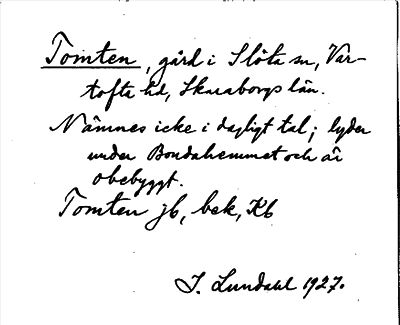 Tomten, gård i Slöta sn, Var-
tofta hd, Skaraborgs län.
Nämnes icke i dagligt tal; lyder
under Bondahemmet och är
obebyggt.
Tomten jb, bek, Kb
I. Lundahl 1927.